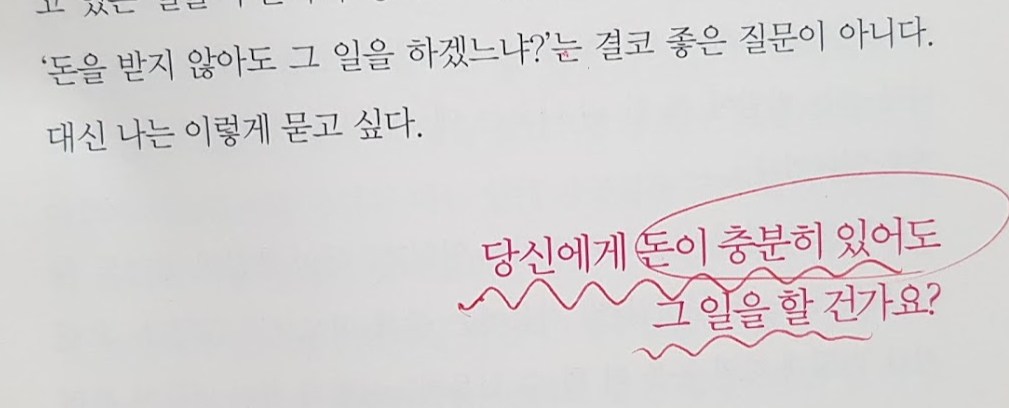 ‘돈을 받지 않아도 그 일을 하겠느냐?’는 결코 좋은 질문이 아니다.
대신 나는 이렇게 묻고 싶다.
당신에게 돈이 충분히 있어도
그 일을 할 건가요?